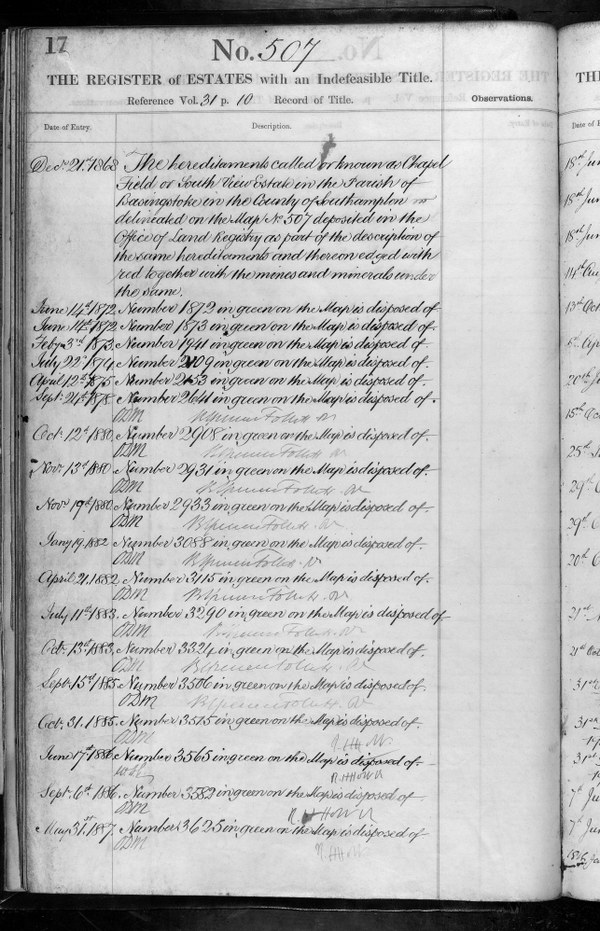 17
No. 507
THE REGISTER of ESTATES with an Indefeasible Title.
Reference Vol. 31 p. 10. Record of Title.
Observations.
Date of Entry.
Description.
Decr. 21st 1868 The hereditaments called or known as Chapel
Field or South View Estate in the Parish of
Basingstoke in the County of Southampton as
delineated on the Map No. 507 deposited in the
Office of Land Registry as part of the description of
the same hereditements and thereon edged with
red together with the mines and minerals under
the same.
June 14th 1872. Number 1872 in green on the Map is disposed of.
June 14th 1872. Number 1873 in green on the Map is disposed of.
Feby. 3rd 1873. Number 1941 in green on the Map is disposed of.
July 22nd 1874. Number 2109 in green on the Map is disposed of.
April 12th 1875. Number 2153 in green on the Map is disposed of.
Sept. 24th 1878. Number 2641 in green on the Map is disposed of.
ODM
Oct. 12th 1880. Number 2908 in green on the Map is disposed of.
ODM
Novr. 13th 1880. Number 2931 in green on the Map is disposed of.
ODM
Novr. 19th 1880. Number 2933 in green on the Map is disposed of.
ODM
Jany. 19. 1882. Number 3088 in green on the Map is disposed of.
ODM
April 21. 1882. Number 3115 in green on the Map is disposed of.
ODM
July 11th 1883. Number 3290 in green on the Map is disposed of
ODM
Oct. 13th 1883. Number 3324 in green on the Map is disposed of.
ODM
Sept. 15th 1885. Number 3506 in green on the Map is disposed of.
ODM
Oct. 31. 1885. Number 3515 in green on the Map is disposed of.
ODM
June 17th 1886. Number 3565 in green on the Map is disposed of.
Sept. 6th 1886. Number 3582 in green on the Map is disposed of.
ODM
May 31st 1887. Number 3625 in green on the Map is disposed of
ODM